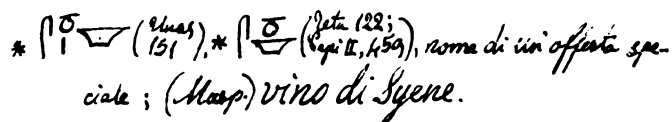 * 𓋴𓏌𓏤𓎟 (Unas 151), * 𓋴𓏌𓎟 (Teta 122; Pepi II, 459), noma di un' offerta spe-
ciale ; (Masp.) vino di Syene.